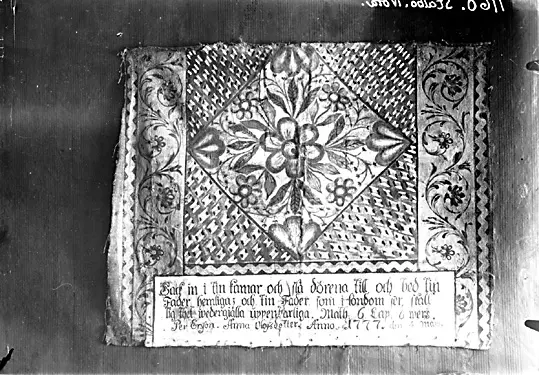 1160. Stalbo, Nora.
Gack in i tin kamar och slå dörena till och bed tin
Fader hemligaz och tin Fader som i löndom ser, skall
tig thet wedergjälla uppenbarliga. Math. 6 Cap. 6 werz.
Per Ersson. Anna Olofsdotter. Anno. 1777. den 4 maii